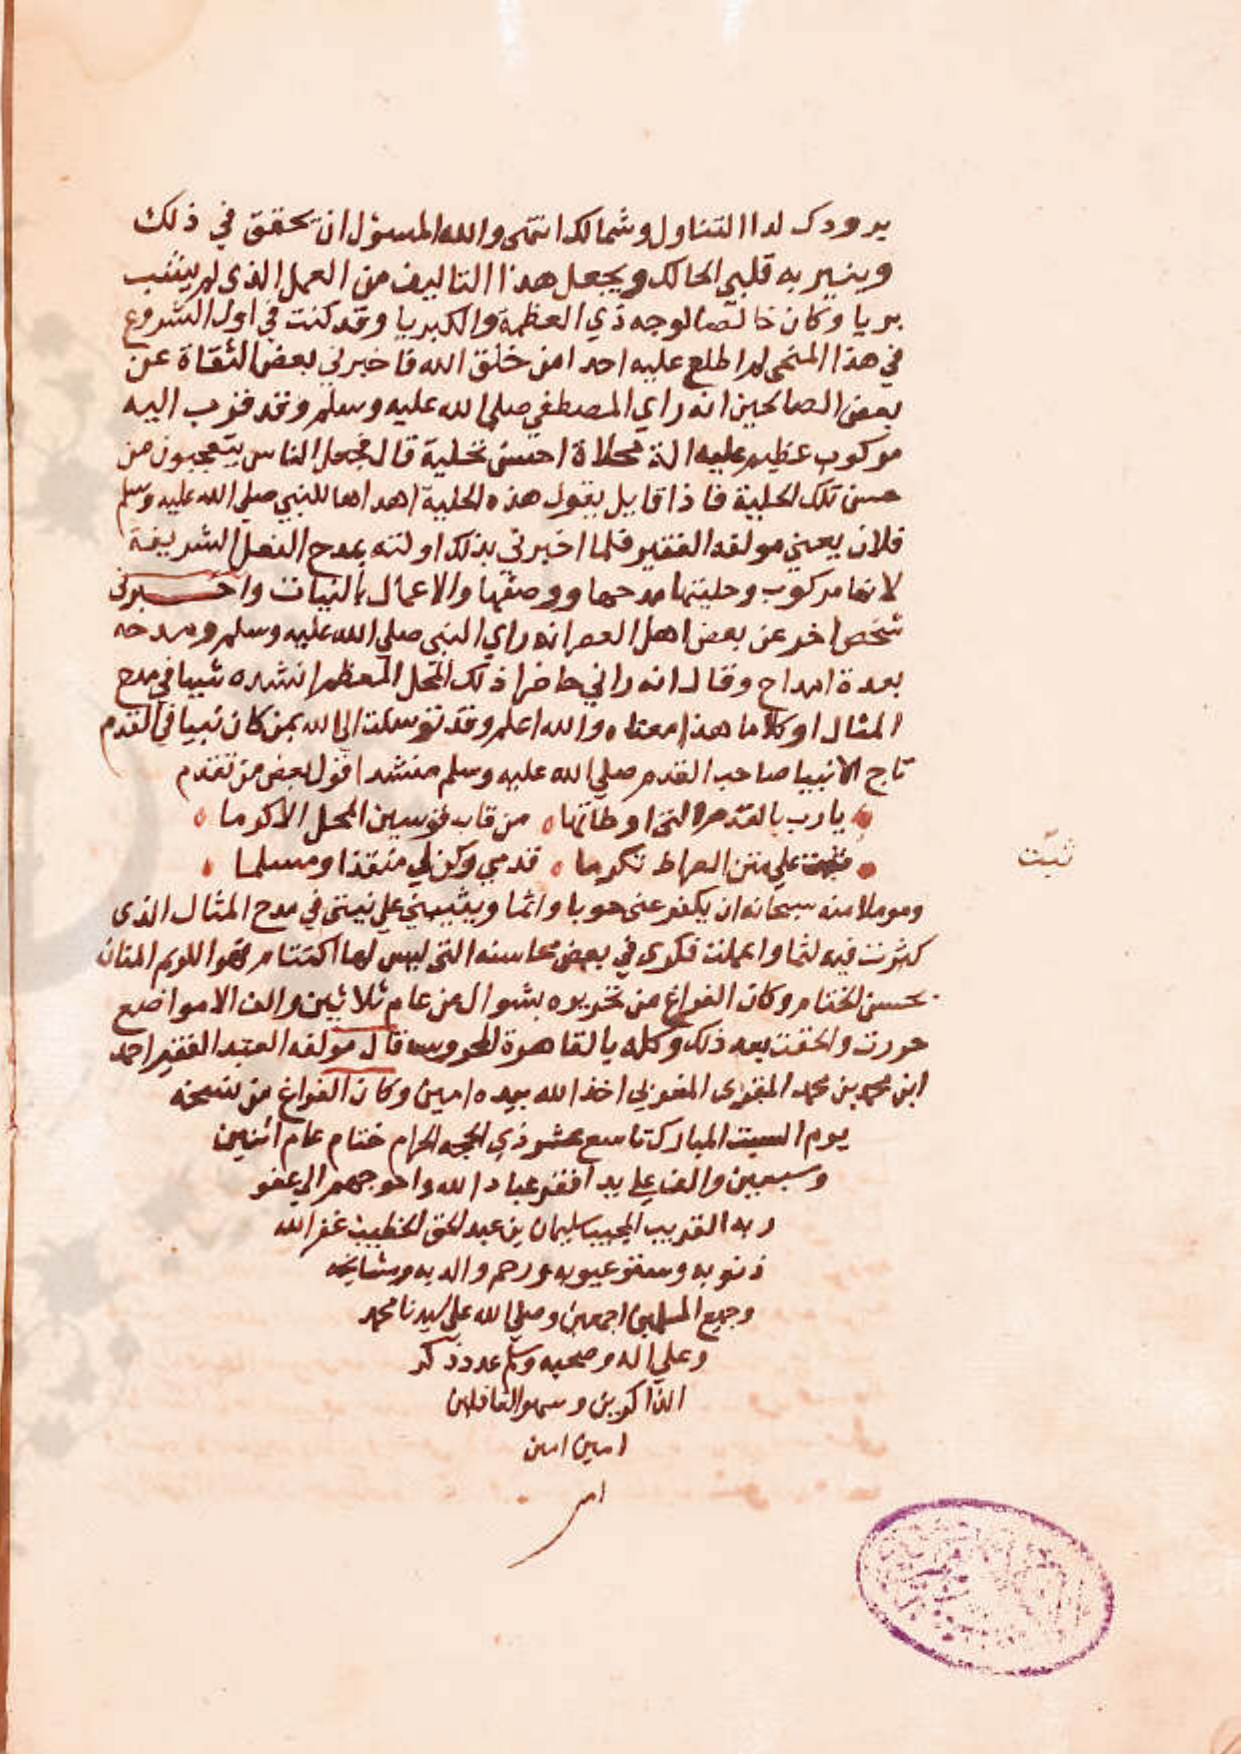 يرودك لدا التناول وشمالك انتمى والله المسؤل ان تحقق في ذلك
وينير به قلبي الحالك ويجعل هذا التاليف من العمل الذى لم يشب
بريا وكان خالصا لوجه ذي العظمة والكبريا وقد كنت في اول الشروع
في هذا المنحى لم اطلع عليه احدا من خلق الله فاخبرني بعض الثقاة عن
بعض الصالحين انه راي المصطفي صلي الله عليه وسلم وقد قرب اليه
مركوب عظيم عليه الة محلاة احسن تحلية قال فجعل الناس يتعجبون من
حسن تلك الحلية فاذا قايل يقول هذه الحلية اهداها للنبي صلي الله عليه وسلم
فلان يعني مولفه الفقير فلما اخبرني بذلك اولته بمدح النعل الشريفة
لانها مركوب وحليتها مدحها ووصفها والاعمال بالنيات واخبرني
شخص اخر عن بعض اهل العصر انه راي النبي صلي الله عليه وسلم ومدحه
بعدة امداح وقال انه راني حاضرا ذلك المحل المعظم انشده شيا في مدح
المثال او كلاما هذا معناه والله اعلم وقد توسلت الي الله بمن كان نبيا في القدم
تاج الانبيا صاحب القدم صلي الله عليه وسلم منشدا قول بعض من تقدم
يارب بالقدم التي اوطاتها من قاب قوسين المحل الاكرما
ثبت علي متن الصراط تكرما قدمي وكن لي منقذا ومسلما
ثبت
وموملا منه سبحانه ان يكفر عني حوبا واثما ويثيبني علي نيتي في مدح المثال الذى
كثرت فيه لثما واعملت فكرى في بعض محاسنه التي ليس لها اكتتام فهو الكريم المنان
بحسن الختام وكان الفراغ من تحريره بشوال من عام ثلاثين والف الا مواضع
حررت والحقت بعد ذلك وكله بالقاهرة المحروسة قال مولفه العبد الفقير احمد
ابن محمد بن محمد المقرى المغربي اخذ الله بيده امين وكان الفراغ من نسخه
يوم السبت المبارك تاسع عشر ذي الحجه الحرام ختام عام اثنين
وسبعين والف علي يد افقر عباد الله واحوجهم الي عفو
ربه القريب المجيب سليمان بن عبد الحق الخطيب غفر الله
ذنوبه وستر عيوبه ورحم والديه ومشايخه
وجميع المسلمين اجمعين وصلي الله علي سيدنا محمد
وعلي اله وصحبه وسلم عدد ذكر
الذاكرين وسهو الغافلين
امين امين
ام